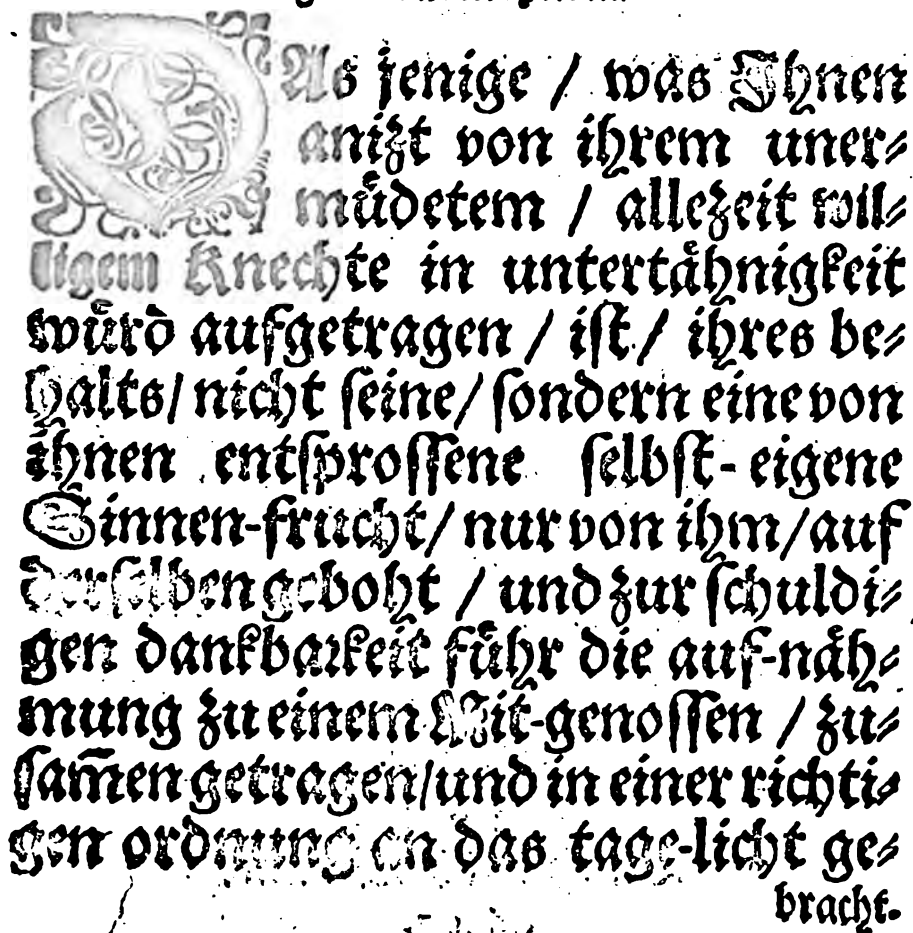 DAs jenige / was Ihnen
anizt von ihrem uner⸗
müdetem / allezeit wil⸗
ligem Knechte in untertähnigkeit
würd aufgetragen / iſt / ihres be⸗
halts / nicht ſeine / ſondern eine von
ihnen entſproſſene ſelbſt-eigene
Sinnen-frucht / nur von ihm / auf
derſelben geboht / und zur ſchuldi⸗
gen dankbarkeit führ die auf-näh⸗
mung zu einem Mit-genoſſen / zu⸗
ſam̃en getragen / und in einer richti⸗
gen ordnung an das tage-licht ge⸗
bracht.